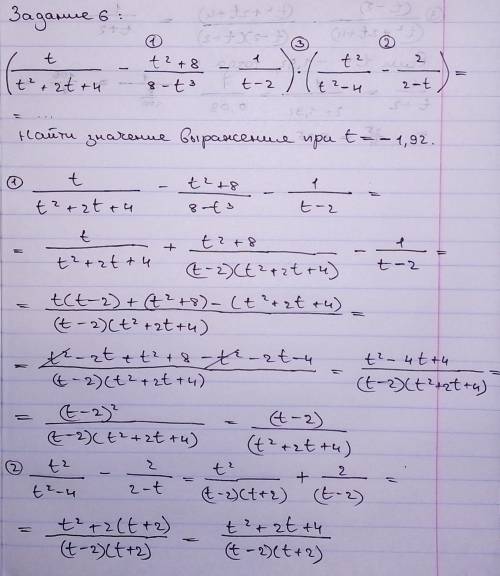 Задание 6 :
(t/(t² + 2t + 4) - (t² + 8)/(8 - t³) - 1/(t - 2)) : (t²/(t² - 4) - 2/(2 - t)) =
① ③ ②
= ...
Найти значение выражения при t = - 1,92.
① t/(t² + 2t + 4) - (t² + 8)/(8 - t³) - 1/(t - 2) =
= t/(t² + 2t + 4) + (t² + 8)/((t - 2)(t² + 2t + 4)) - 1/(t - 2) =
= (t(t - 2) + (t² + 8) - (t² + 2t + 4))/((t - 2)(t² + 2t + 4)) =
= (t² - 2t + t² + 8 - t² - 2t - 4)/((t - 2)(t² + 2t + 4)) = (t² - 4t + 4)/((t - 2)(t² + 2t + 4)) =
= (t - 2)²/((t - 2)(t² + 2t + 4)) = (t - 2)/(t² + 2t + 4)
② t²/(t² - 4) - 2/(2 - t) = t²/((t - 2)(t + 2)) + 2/(t - 2) =
= (t² + 2(t + 2))/((t - 2)(t + 2)) = (t² + 2t + 4)/((t - 2)(t + 2))